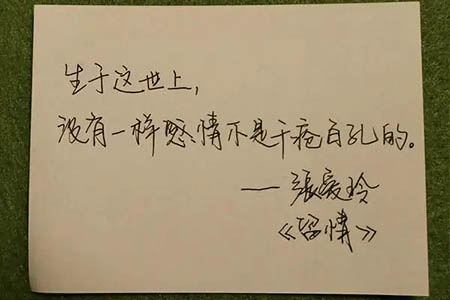 生于这世上，
没有一样感情不是千疮百孔的。
——張爱玲
《留情》